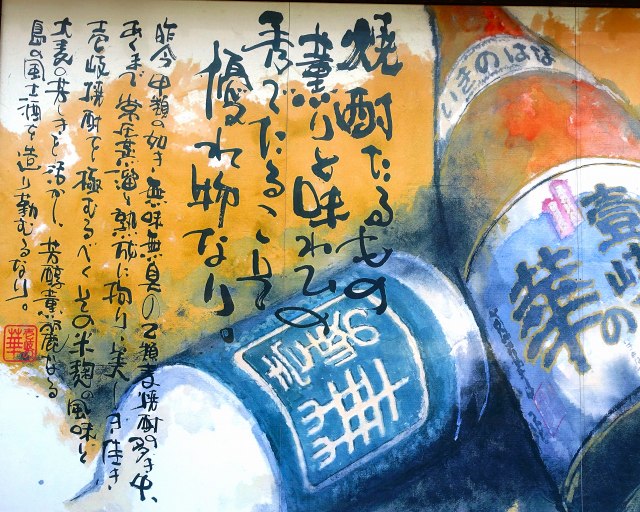 焼酎たるもの
薫りと味わひの
秀でたるこそ
優れ物なり。
昨今甲類の如き無味無臭の乙類麦焼酎の多き中、
あくまで常圧蒸溜と熟成に拘り
壱岐焼酎を極むるべくその米麹の風味と
大麦の芳しきを活かし、芳醇薫麗なる
島の風土酒を造り勤むるなり。
いきのはな
壱岐の
華
華